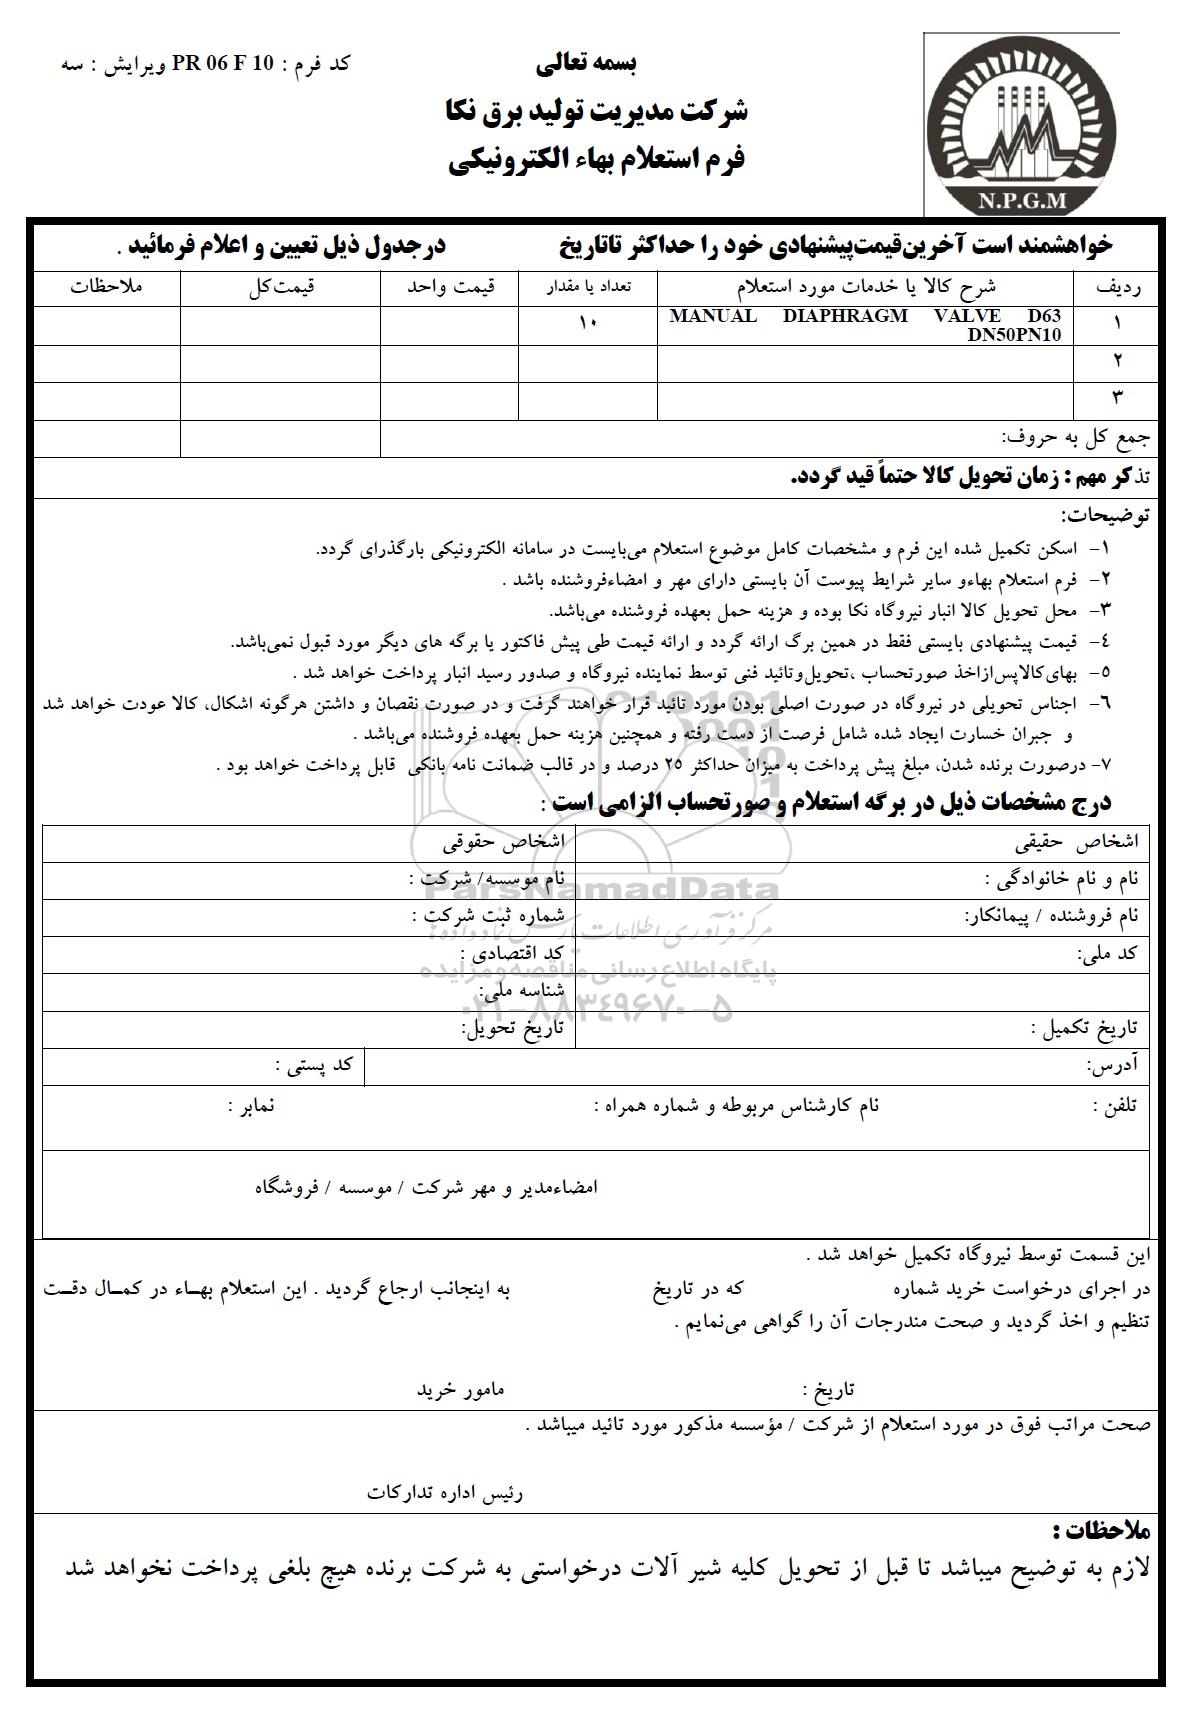 کد فرم : PR 06 F 10 ویرایش : سه
بسمه تعالی
شرکت مدیریت تولید برق نکا
فرم استعلام بهاء الکترونیکی
N.P.G.M
خواهشمند است آخرین‌قیمت‌پیشنهادی خود را حداکثر تاتاریخ درجدول ذیل تعیین و اعلام فرمائید .
ردیف شرح کالا یا خدمات مورد استعلام تعداد یا مقدار قیمت واحد قیمت‌کل ملاحظات
۱ MANUAL DIAPHRAGM VALVE D63 ۱۰
DN50PN10
۲
۳
جمع کل به حروف:
تذکر مهم : زمان تحویل کالا حتماً قید گردد.
توضیحات:
۱- اسکن تکمیل شده این فرم و مشخصات کامل موضوع استعلام می‌بایست در سامانه الکترونیکی بارگذرای گردد.
۲- فرم استعلام بهاءو سایر شرایط پیوست آن بایستی دارای مهر و امضاءفروشنده باشد .
۳- محل تحویل کالا انبار نیروگاه نکا بوده و هزینه حمل بعهده فروشنده می‌باشد.
۴- قیمت پیشنهادی بایستی فقط در همین برگ ارائه گردد و ارائه قیمت طی پیش فاکتور یا برگه های دیگر مورد قبول نمی‌باشد.
۵- بهای‌کالاپس‌ازاخذ صورتحساب ،تحویل‌وتائید فنی توسط نماینده نیروگاه و صدور رسید انبار پرداخت خواهد شد .
۶- اجناس تحویلی در نیروگاه در صورت اصلی بودن مورد تائید قرار خواهند گرفت و در صورت نقصان و داشتن هرگونه اشکال، کالا عودت خواهد شد
و جبران خسارت ایجاد شده شامل فرصت از دست رفته و همچنین هزینه حمل بعهده فروشنده می‌باشد .
۷- درصورت برنده شدن، مبلغ پیش پرداخت به میزان حداکثر ۲۵ درصد و در قالب ضمانت نامه بانکی قابل پرداخت خواهد بود .
درج مشخصات ذیل در برگه استعلام و صورتحساب الزامی است :
اشخاص حقیقی اشخاص حقوقی
نام و نام خانوادگی : نام موسسه/ شرکت :
ParsNamadData
نام فروشنده / پیمانکار: شماره ثبت شرکت :
مرکز فرآوری اطلاعات پارس نماد داده ها
کد ملی: کد اقتصادی :
پایگاه اطلاع رسانی مناقصه و مزایده
شناسه ملی:
۰۲۱-۸۸۳۴۹۶۷۰-۵
تاریخ تکمیل : تاریخ تحویل:
آدرس: کد پستی :
تلفن : نام کارشناس مربوطه و شماره همراه : نمابر :
امضاءمدیر و مهر شرکت / موسسه / فروشگاه
این قسمت توسط نیروگاه تکمیل خواهد شد .
در اجرای درخواست خرید شماره که در تاریخ به اینجانب ارجاع گردید . این استعلام بهـاء در کمـال دقـت
تنظیم و اخذ گردید و صحت مندرجات آن را گواهی می‌نمایم .
تاریخ : مامور خرید
صحت مراتب فوق در مورد استعلام از شرکت / مؤسسه مذکور مورد تائید میباشد .
رئیس اداره تدارکات
ملاحظات :
لازم به توضیح میباشد تا قبل از تحویل کلیه شیر آلات درخواستی به شرکت برنده هیچ بلغی پرداخت نخواهد شد